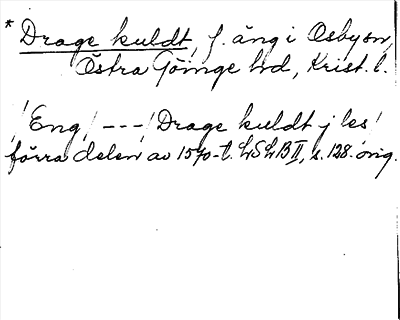 * Drage kuldt, f. äng i Osby sn,
Östra Göinge hd, Krist. l.
/Eng/ --- /Drage kuldt j les/
förra delen av 1570-t. LSLB II, s. 128. orig.